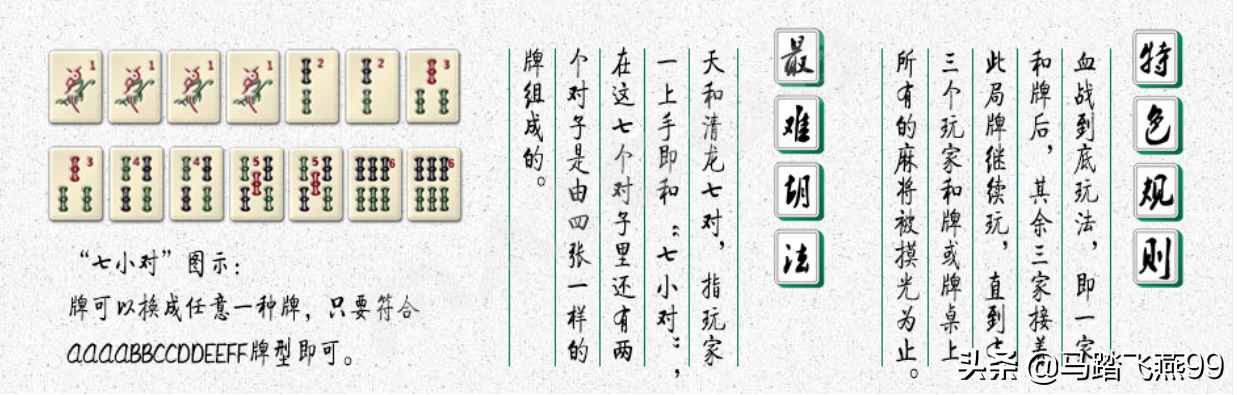 特色规则
血战到底玩法，即一家
和牌后，其余三家接着
此局牌继续玩，直到
三个玩家和牌或牌桌上
所有的麻将被摸光为止。
最难胡法
天和清龙七对，指玩家
一上手即和“七小对”，
在这七个对子里还有两
个对子是由四张一样的
牌组成的。
1 1 1 1 2 2 3
3 4 4 5 5 6 6
“七小对”图示：
牌可以换成任意一种牌，只要符合
AAAABBCCDDEEFF牌型即可。
头条 @马踏飞燕99